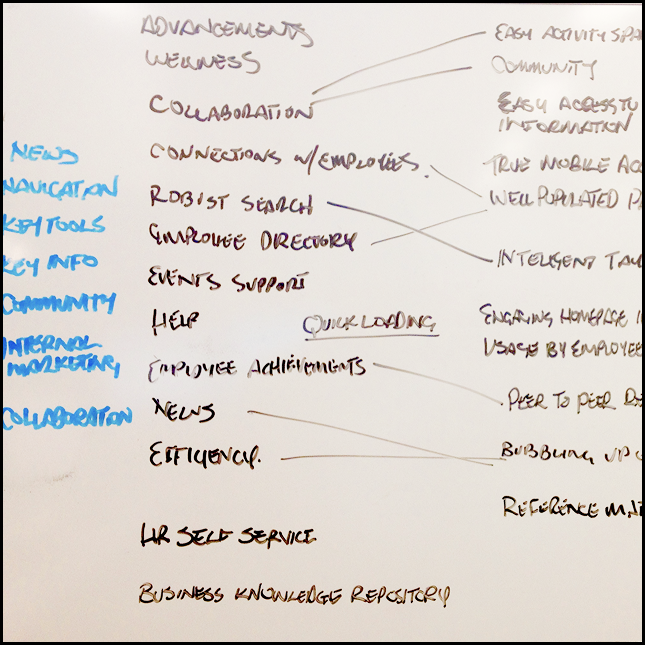 NEWS
NAVIGATION
KEY TOOLS
KEY INFO
COMMUNITY
INTERNAL
MARKETING
COLLABORATION
ADVANCEMENTS
WELLNESS
COLLABORATION
CONNECTIONS W/EMPLOYEES
ROBUST SEARCH
EMPLOYEE DIRECTORY
EVENTS SUPPORT
HELP
QUICK LOADING
EMPLOYEE ACHIEVEMENTS
NEWS
EFFICIENCY.
HR SELF SERVICE
BUSINESS KNOWLEDGE REPOSITORY
EASY ACTIVITY SPA
COMMUNITY
EASY ACCESS TO
INFORMATION
TRUE MOBILE ACC
WELL POPULATED
INTELIGENT
ENGAGING HOMEPAGE
USAGE BY EMPLOYEE
PEER TO PEER RE
BUBBLING UP
REFERENCE